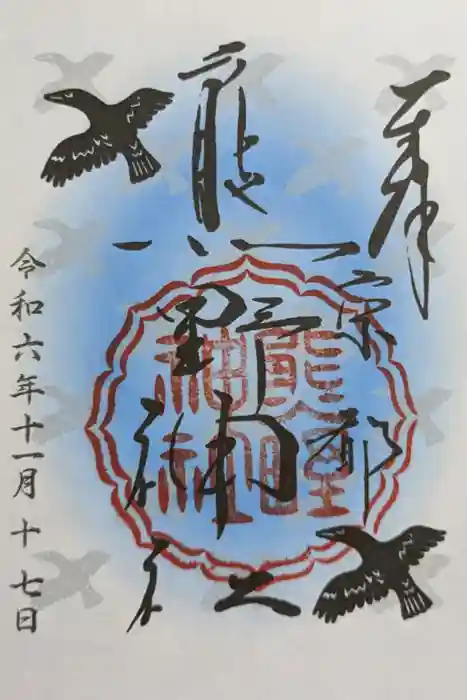 奉
京都
熊野神社
令和六年十一月十七日
熊野
神社